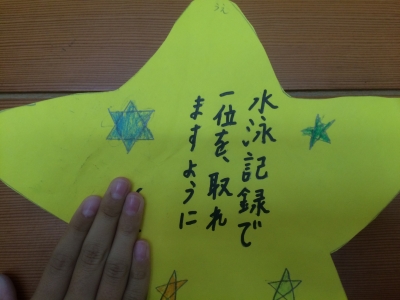 水泳記録で
一位を、取れ
ますように